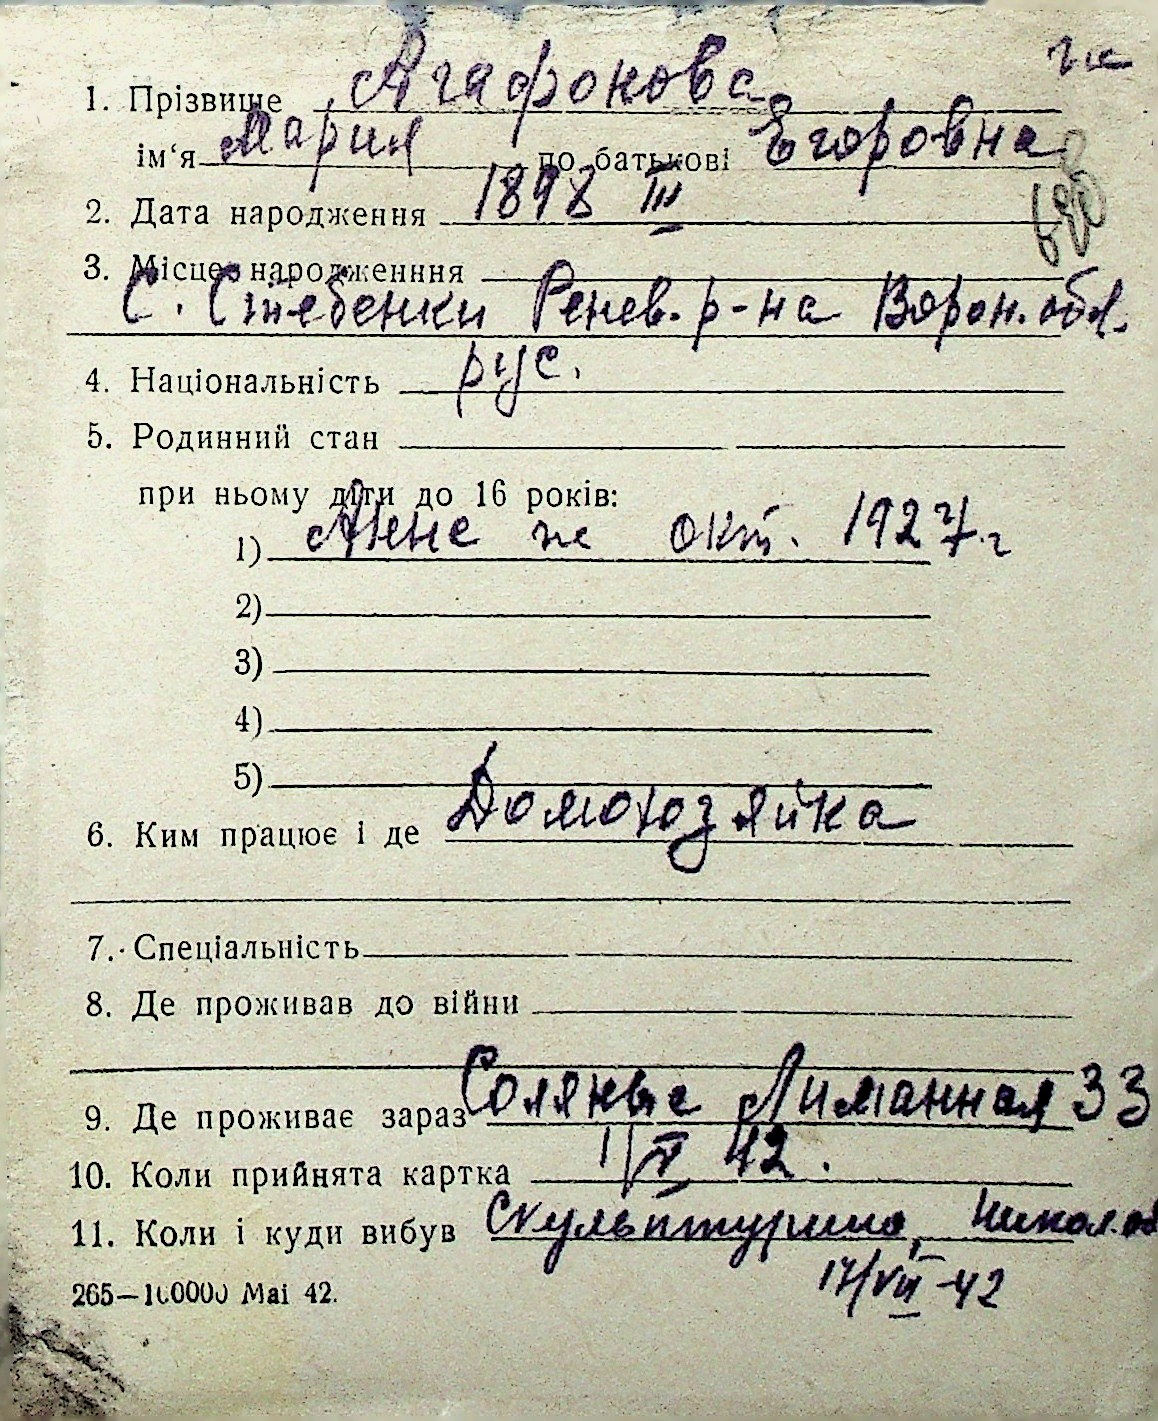 1. Прізвище Агафонова
ім‘я Мария по батькові Егоровна
2. Дата народження 1898 III
3. Місце народженння
С. Стебенки Ренев. р-на Ворон. обл.
4. Національність рус.
5. Родинний стан
при ньому діти до 16 років:
1) Анна ж окт. 1927 г
2)
3)
4)
5)
6. Ким працює і де Домохозяйка
7. Спеціальність
8. Де проживав до війни
9. Де проживає зараз Лиманная 33
10. Коли прийнята картка 42.
11. Коли і куди вибув Никол. об
17/VII-42
265—100000 Mai 42.